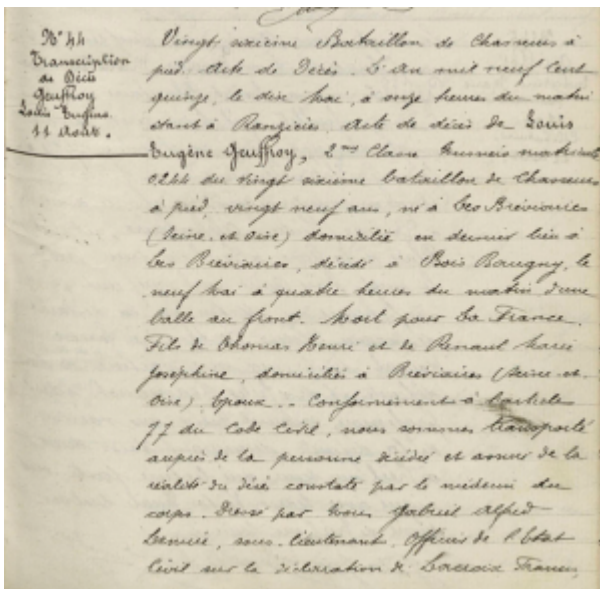 N° 44
Transcription
de Décès
Geuffroy
Louis Eugène
11 Août.
Vingt sixième Bataillon de Chasseurs à
pied. Acte de Décès. L'an mil neuf cent
quinze, le dix Mai, à onze heures du matin
étant à Ranzières. Acte de décès de Louis
Eugène Geuffroy, 2me Classe Numéro matricule
0244 du vingt sixième bataillon de Chasseurs
à pied, vingt neuf ans, né à Les Bréviaires
(Seine-et-Oise) domicilié en dernier lieu à
Les Bréviaires, décédé à Bois, le
neuf Mai à quatre heures du matin d'une
balle au front. Mort pour La France.
Fils de Thomas Henri et de Renault Marie
Joséphine, domiciliés à Bréviaires (Seine-et-
Oise). Epoux .. Conformément à l'article
77 du Code Civil, nous sommes transporté
auprès de la personne décédée et assuré de la
réalité du décès constaté par le médecin du
corps. Dressé par Nous Gabriel Alfred
sous-lieutenant, Officier de l'Etat
Civil sur la déclaration de Lacroix